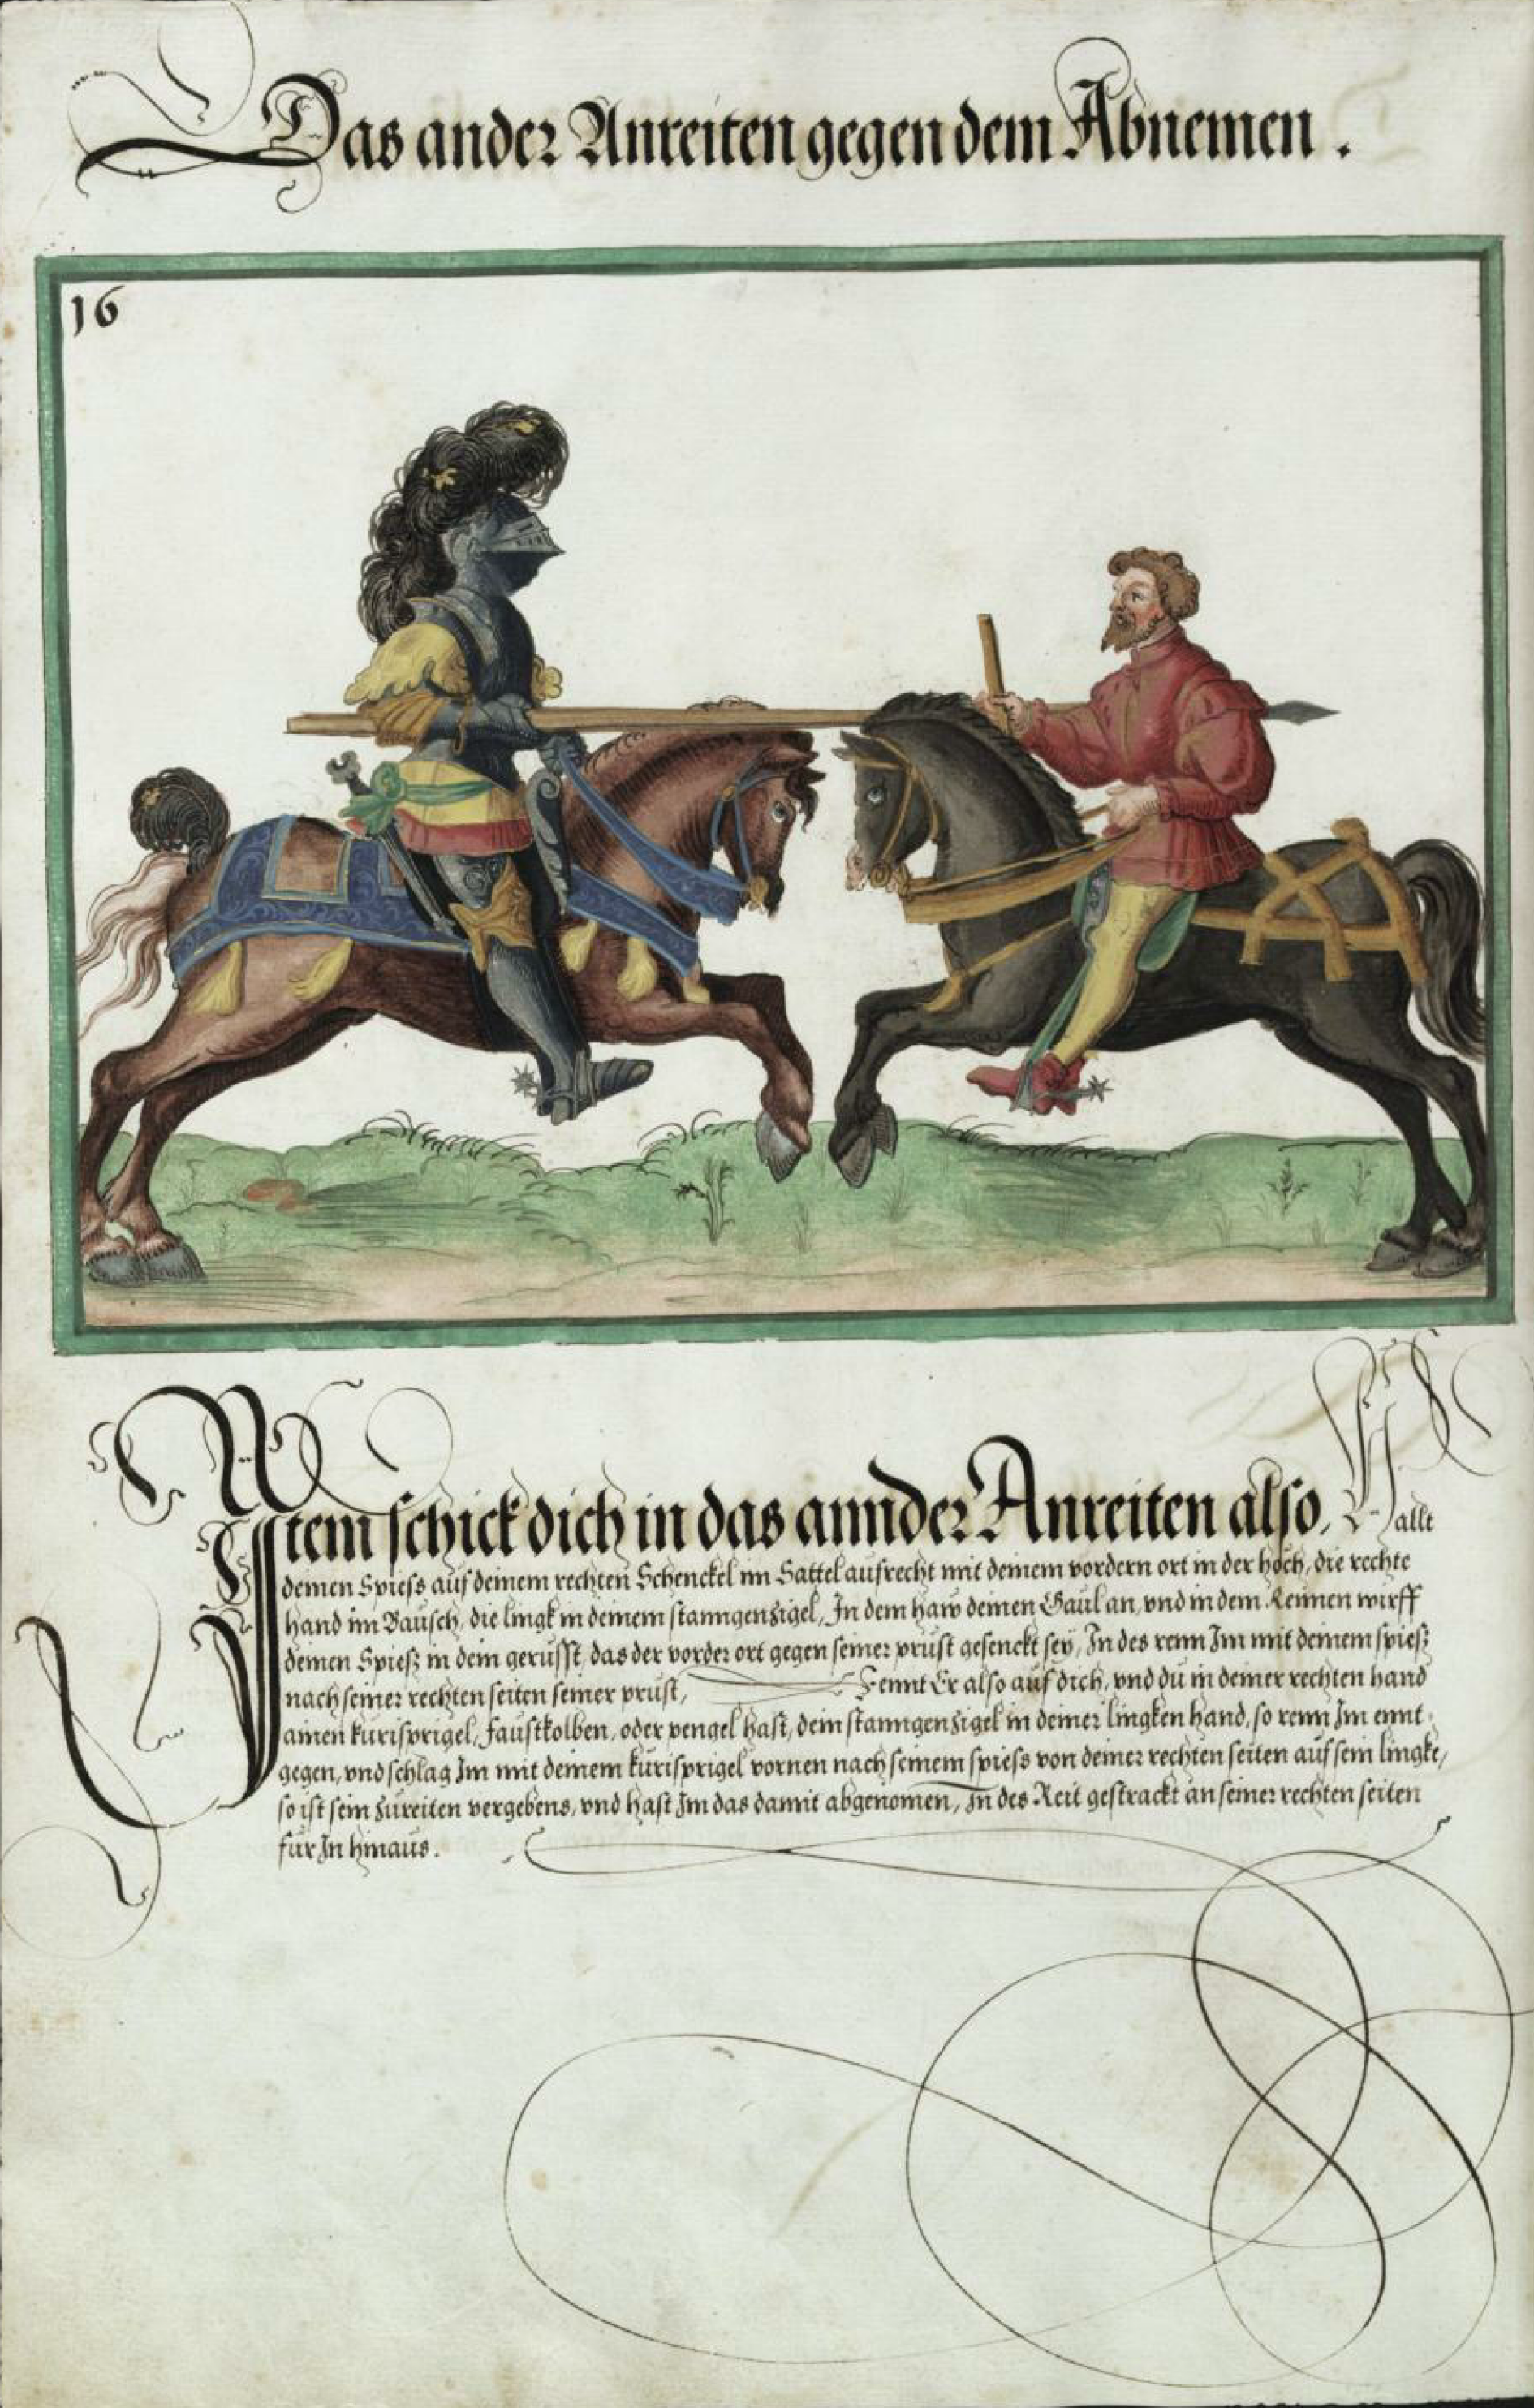 Das ander Anreiten gegen dem Abnemen.
16
Item schick dich in das annder Anreiten also, Hallt
deinen Spiess auf deinem rechten Schenckel im Sattel aufrecht mit deinem vordern ort in der höch, die rechte
hand im Bausch, die lingk in deinem stanngenzigel, In dem haw deinen Gaul an, vnd in dem Rennen wirff
deinen Spiesz in dein gerüsst, das der vorder ort gegen seiner prust gesenckt sey, In des renn Im mit deinem spiesz
nach seiner rechten seiten seiner prust, Rennt Er also auf dich, vnd du in deiner rechten hand
ainen kurisprigel, faustkolben, oder pengel hast, dein stanngenzigel in deiner lingken hand, so renn Im ennt
gegen, vnd schlag Im mit deinem kurisprigel vornen nach seinem spiess von deiner rechten seiten auf sein lingke,
so ist sein zureiten vergebens, vnd hast Im das damit abgenomen, In des Reit gestrackt an seiner rechten seiten
für In hinaus.